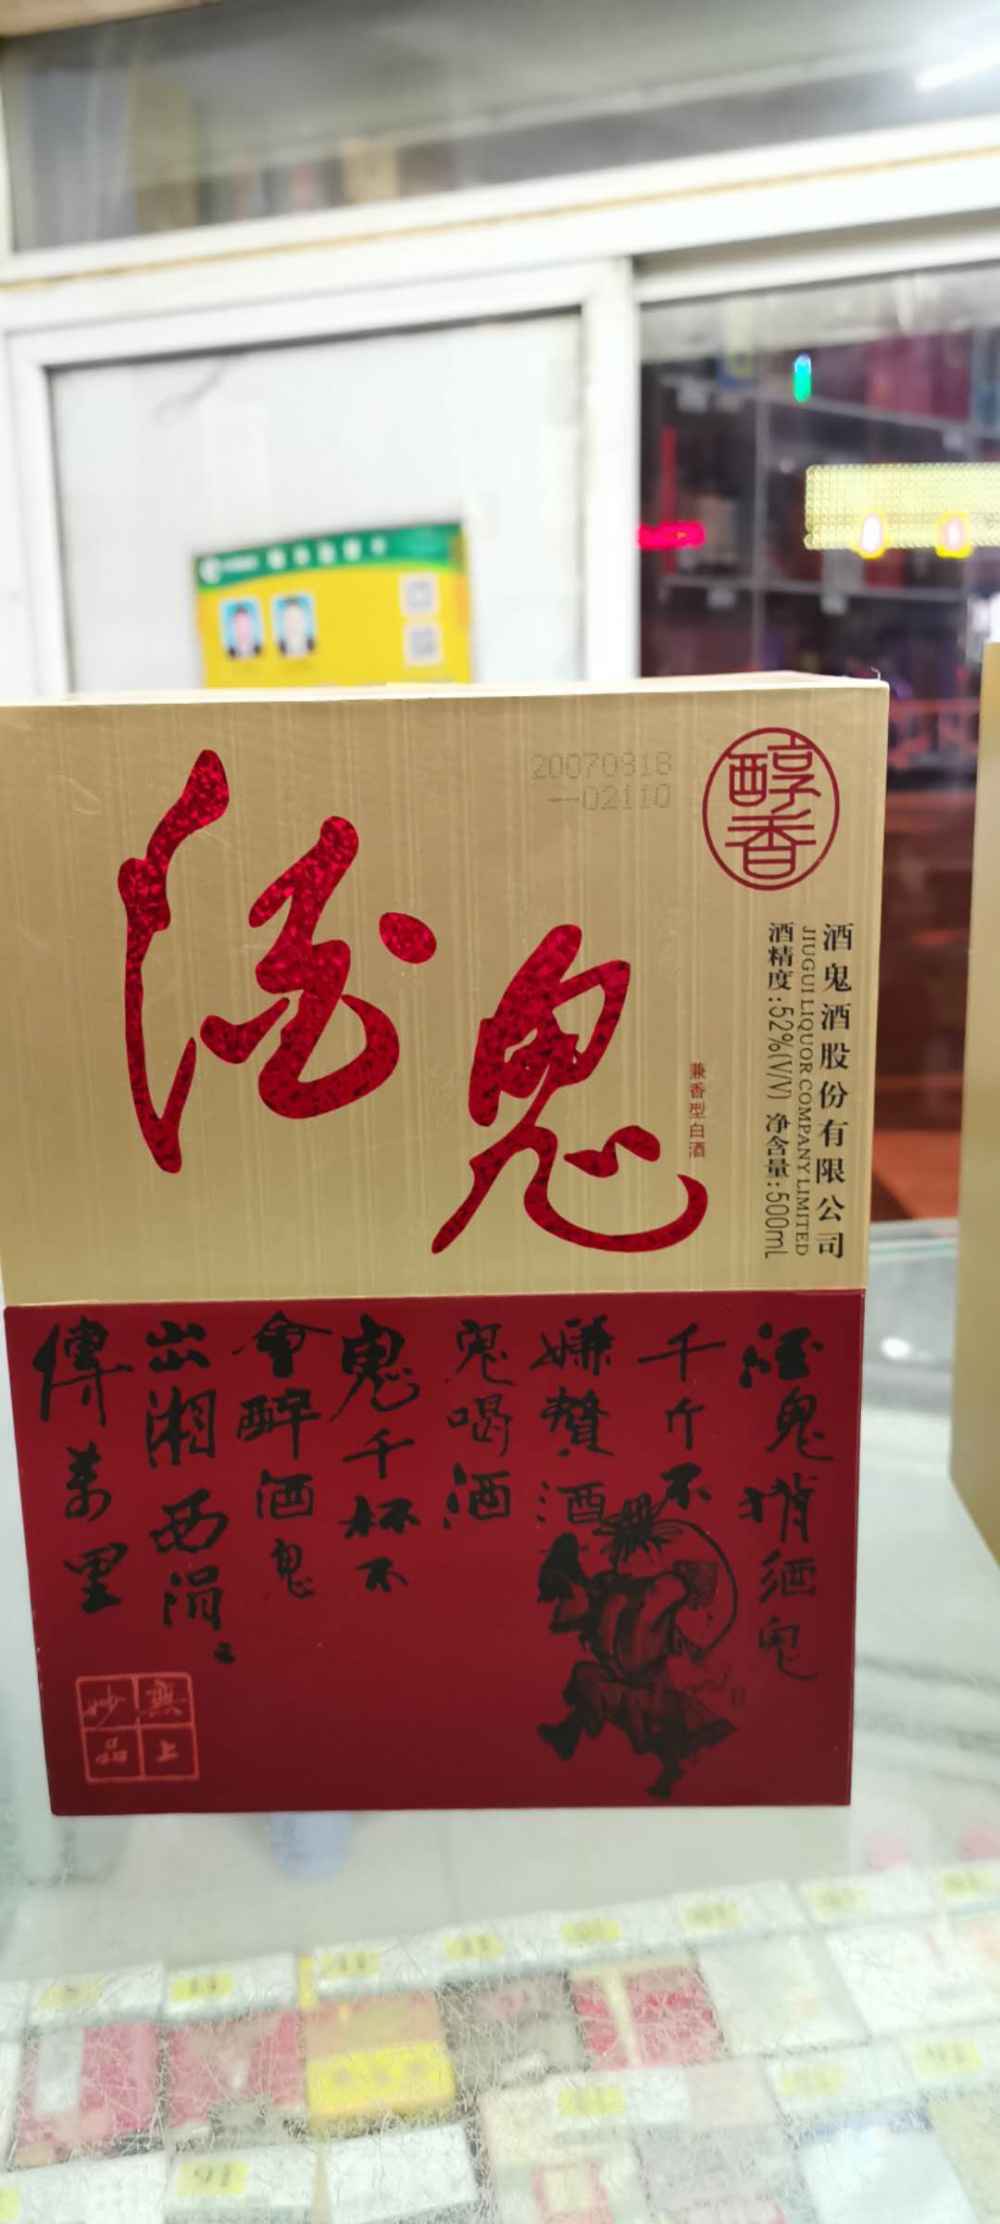 20070818
--02110
醇香
酒鬼
兼香型白酒
酒鬼酒股份有限公司
JIUGUI LIQUOR COMPANY LIMITED
酒精度:52%(V/V) 净含量:500mL
酒鬼揹酒鬼
千斤不
嫌赘酒
鬼喝酒
鬼千杯不
會醉酒鬼
出湘西涓
傳萬里
無上
妙品